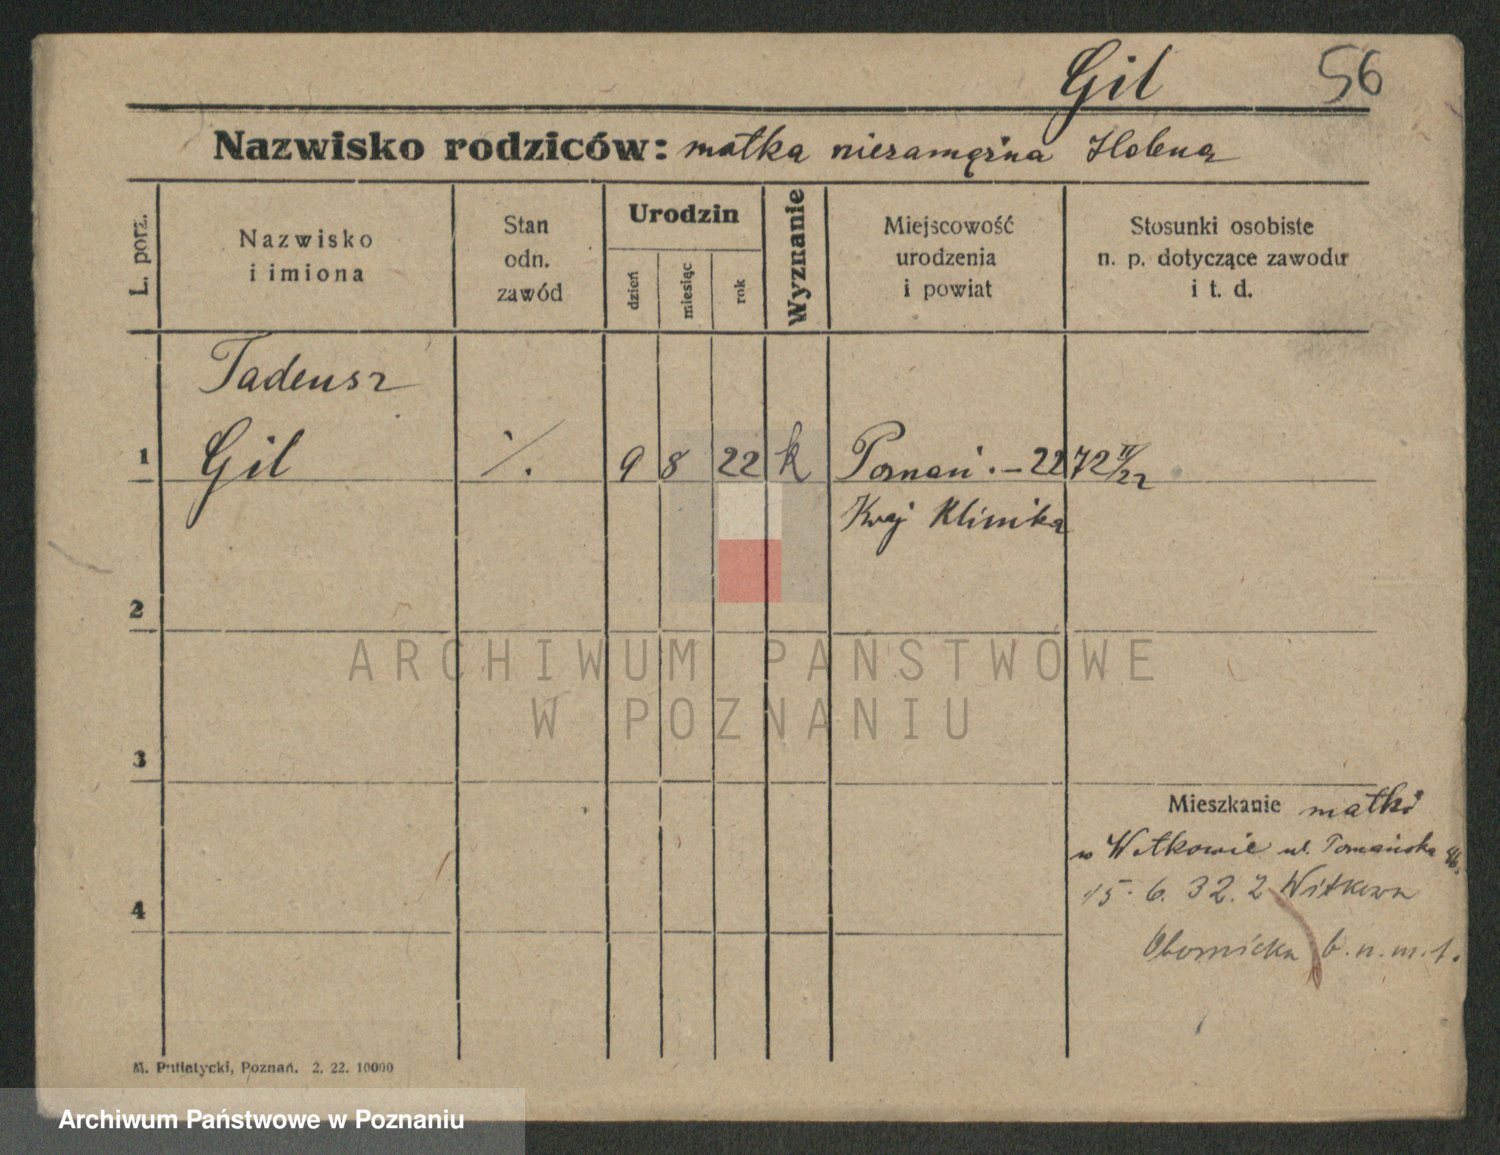 Gil 56
Nazwisko rodziców: matka niezamężna Helena
L. porz.
Nazwisko
i imiona
Stan
odn.
zawód
Urodzin
dzień
miesiąc
rok
Wyznanie
Miejscowość
urodzenia
i powiat
Stosunki osobiste
n. p. dotyczące zawodu
i t. d.
Tadeusz
1 Gil ./. 9 8 22 k Poznań . – 2272 II/22
Kraj Klinika
2
ARCHIWUM PAŃSTWOWE
W POZNANIU
3
Mieszkanie matki
w Witkowie ul. Poznańska
4 15. 6. 32. z Witkowa
Obornicka b. n. m. 1.
M. Putiatycki, Poznań. 2. 22. 10000
Archiwum Państwowe w Poznaniu